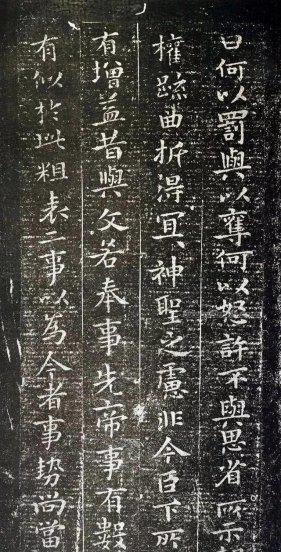 曰何以罰與以奪何以怒許不與思省所示
權疏曲折得冝〻神聖之慮非今臣下所
有增益昔與文若奉事先帝事有數
有似於此粗表二事以為今者事勢尚當